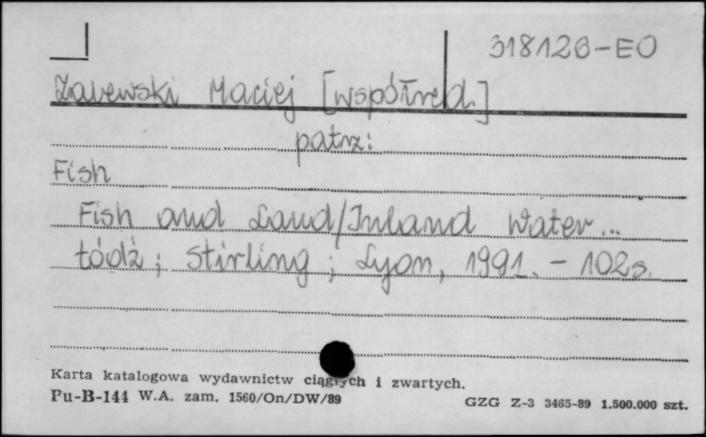 318126-EO
Zalewski Maciej [współred.]
patrz:
Fish
Fish and Land/Inland Water...
Łódź; Stirling; Lyon, 1991. - 102s.
Karta katalogowa wydawnictw ciągłych i zwartych.
Pu-B-144 W.A. zam. 1560/On/DW/89
GZG Z-3 3465-89 1.500.000 szt.